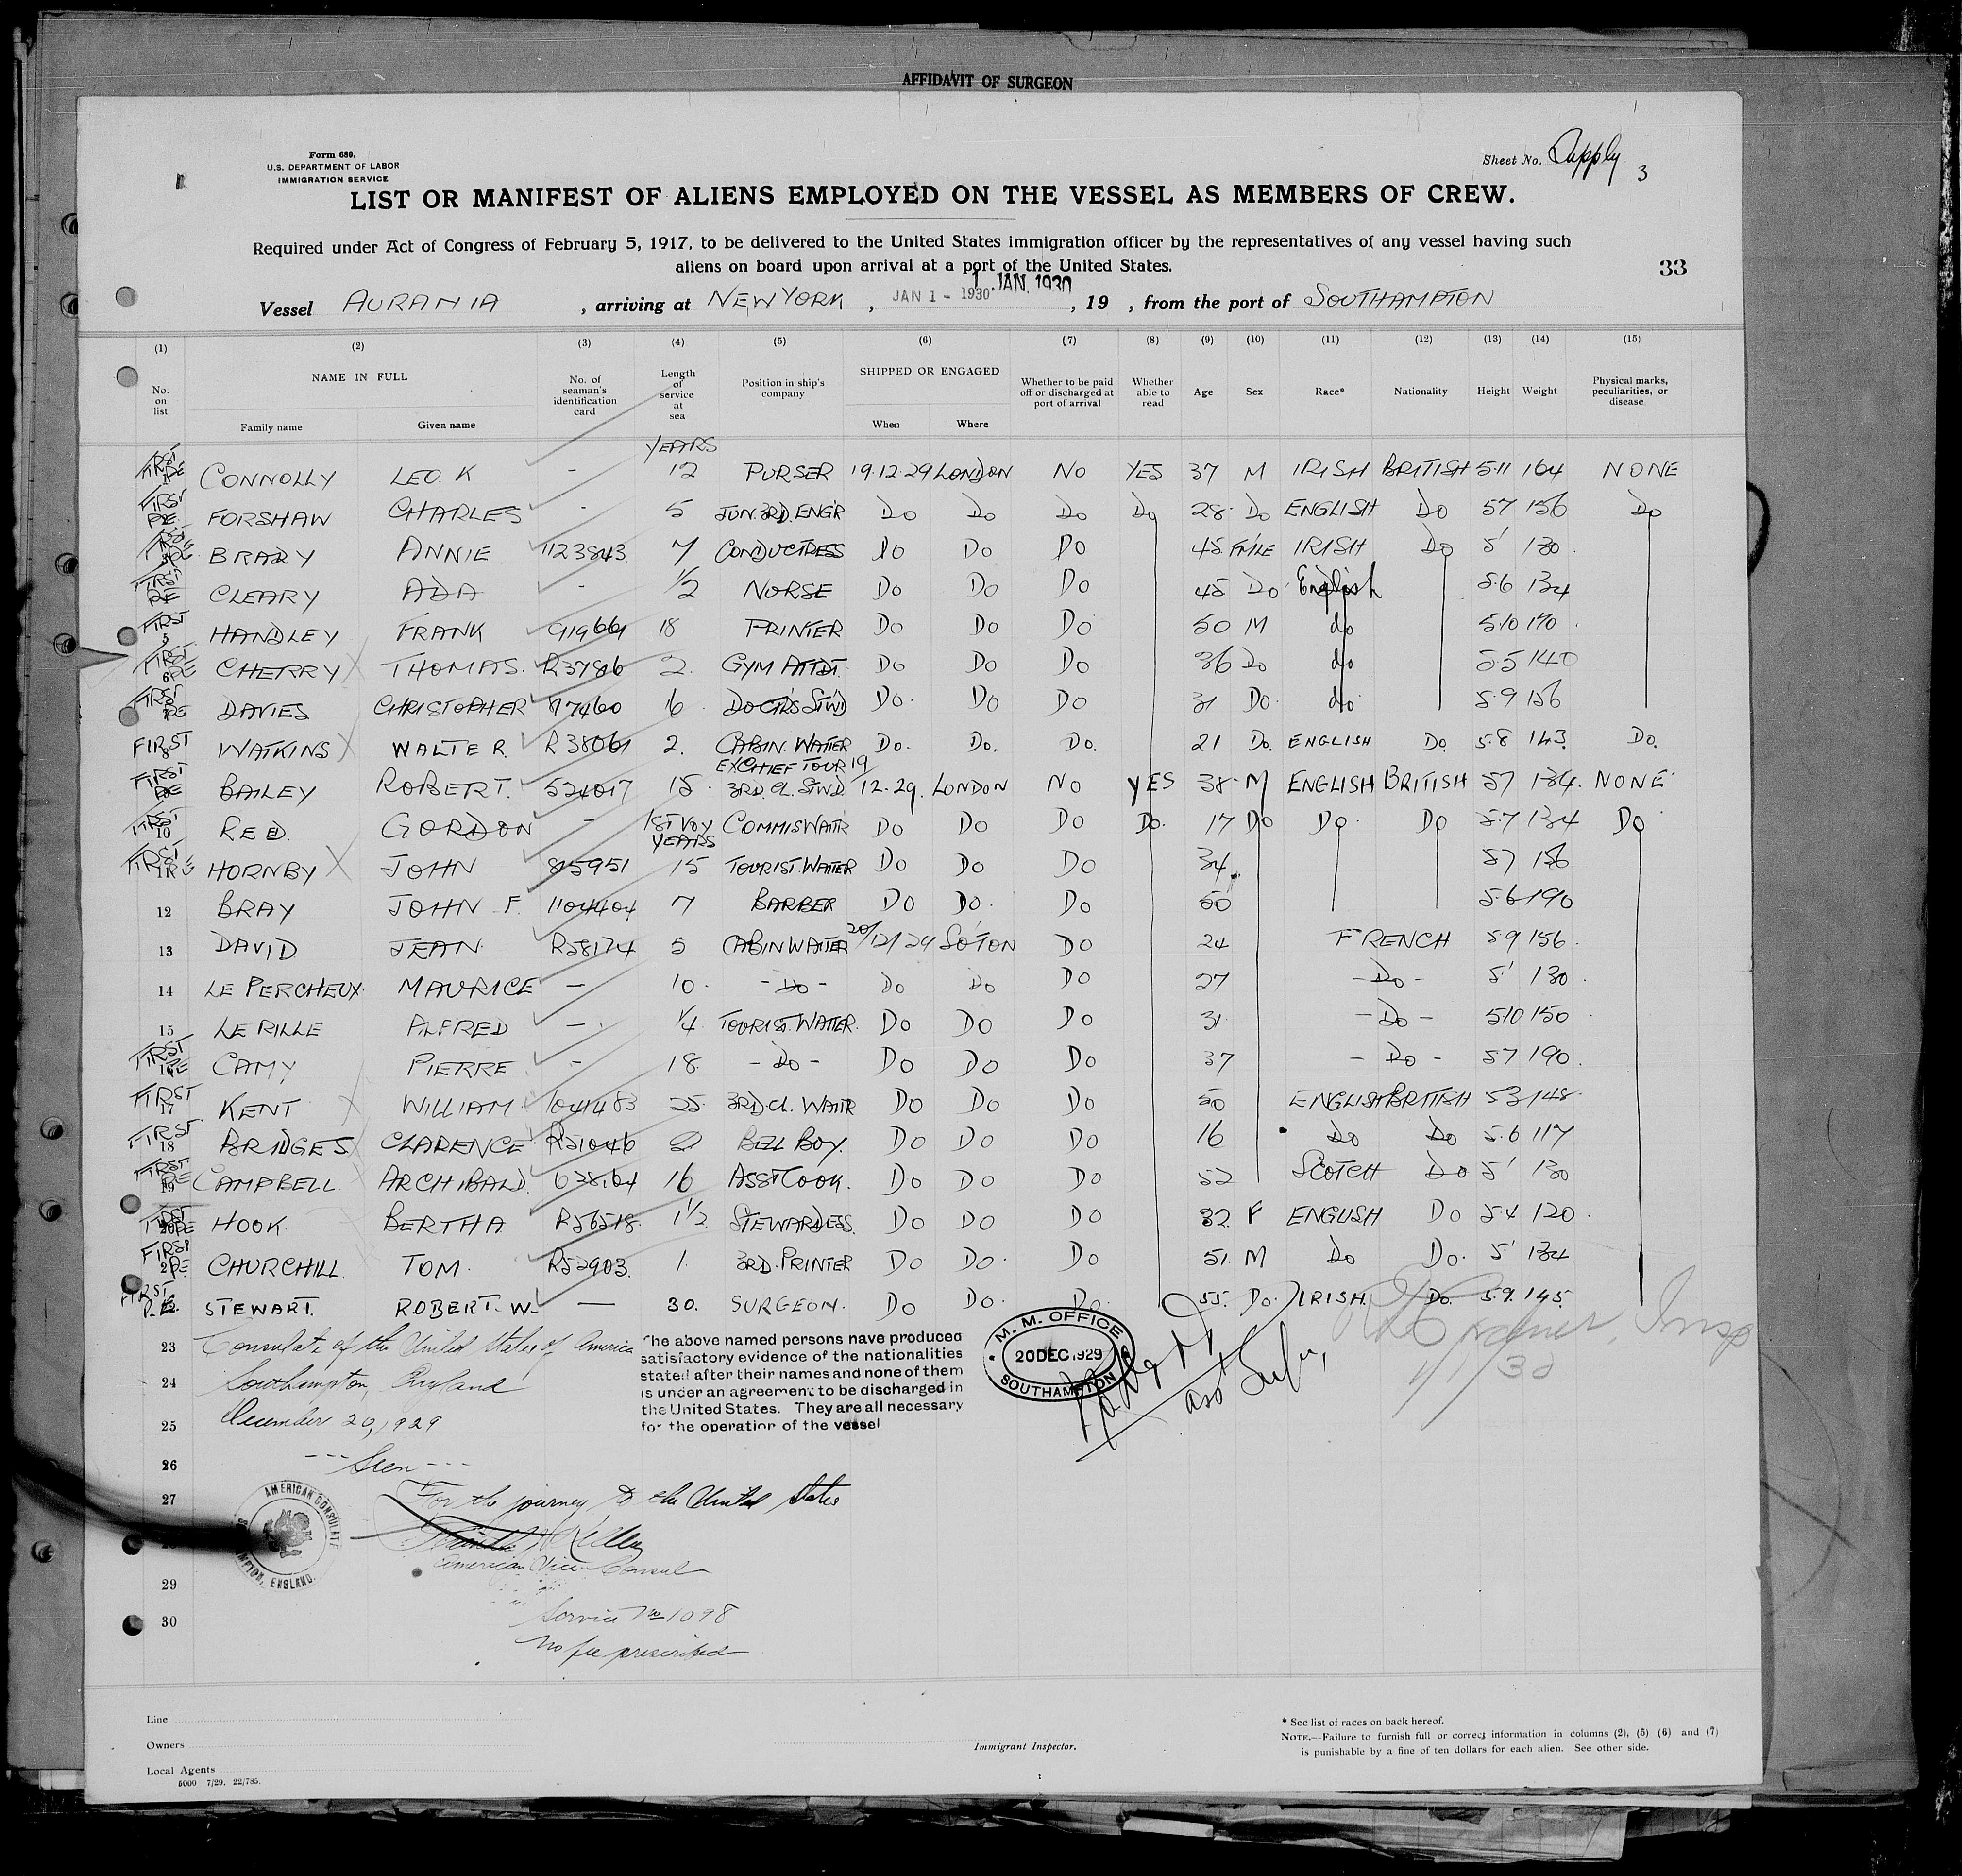 AFFIDAVIT OF SURGEON
Form 680.
U.S. DEPARTMENT OF LABOR
IMMIGRATION SERVICE
Sheet No. Supply 3
LIST OR MANIFEST OF ALIENS EMPLOYED ON THE VESSEL AS MEMBERS OF CREW.
Required under Act of Congress of February 5, 1917, to be delivered to the United States immigration officer by the representatives of any vessel having such
aliens on board upon arrival at a port of the United States.
33
1 JAN. 1930
Vessel AURANIA, arriving at NEW YORK, JAN 1 - 1930, 19 , from the port of SOUTHAMPTON
(1) (2) (3) (4) (5) (6) (7) (8) (9) (10) (11) (12) (13) (14) (15)
No. on list NAME IN FULL Family name Given name No. of seaman's identification card Length of service at sea Position in ship's company SHIPPED OR ENGAGED When Where Whether to be paid off or discharged at port of arrival Whether able to read Age Sex Race* Nationality Height Weight Physical marks, peculiarities, or disease
YEARS
FIRST RE 1 CONNOLLY LEO. K - 12 PURSER 19.12.29 LONDON NO YES 37 M IRISH BRITISH 5.11 164 NONE
FIRST RE 2 FORSHAW CHARLES - 5 JUN.3RD.ENG'R DO DO DO DO 28 DO ENGLISH DO 57 156 DO
FIRST RE 3 BRADY ANNIE 1123843 7 CONDUCTRESS DO DO DO 45 F'MLE IRISH DO 5' 130
FIRST RE 4 CLEARY ADA - 1/2 NURSE DO DO DO 45 DO English 5.6 134
FIRST 5 HANDLEY FRANK 919661 18 PRINTER DO DO DO 50 M do 5.10 170
FIRST RE 6 CHERRY X THOMAS. R37816 2. GYM ATTDT. DO DO DO 36 DO do 5.5 140
FIRST RE 7 DAVIES CHRISTOPHER 87460 16 DOCTR'S STWD DO. DO DO 31 DO. do. 5.9 156
FIRST 8 WATKINS X WALTER. R38061 2. CABIN. WAITER DO. DO. DO. 21 DO. ENGLISH DO. 5.8 143. DO.
FIRST RE 9 BAILEY ROBERT. 524017 15. EX CHIEF TOUR 3RD. CL. STWD. 19/12.29. LONDON NO YES 38 M ENGLISH BRITISH 57 134. NONE
FIRST 10 REED. GORDON - 1ST VOY COMMIS WAITR DO DO DO DO. 17 DO DO. DO 5.7 134 DO
YEARS
FIRST RE 11 HORNBY X JOHN 815951 15 TOURIST. WAITER DO DO DO 34 57 156
12 BRAY JOHN F. 1104404 7 BARBER DO DO. DO 50 5.6 190
13 DAVID JEAN R58174 5 CABIN WAITER 20/12/29 SO'TON DO 24 FRENCH 59 156.
14 LE PERCHEUX. MAURICE - 10. - DO - DO DO DO 27 - DO - 5' 130.
15 LE RILLE ALFRED - 1/4 TOURIST. WAITER. DO DO DO 31. - DO - 510 150
FIRST RE 16 CAMY PIERRE - 18. - DO - DO DO DO 37 - DO - 57 190.
FIRST 17 KENT X WILLIAM. 1041483 25. 3RD. CL. WAITR DO DO DO 50 ENGLISH BRITISH 53 148.
FIRST 18 BRIDGES CLARENCE R51046 2 BELL BOY. DO DO DO 16 DO DO 5.6 117
FIRST. RE 19 CAMPBELL ARCHIBALD. 638164 16 ASST COOK. DO DO DO 52 SCOTCH DO 5' 130
FIRST 20 RE HOOK BERTHA R56518. 1 1/2 STEWARDESS DO DO DO 32. F ENGLISH DO 5.4 120.
FIRST 21 RE CHURCHILL TOM. R52903. 1. 3RD. PRINTER DO DO. DO 51. M DO DO. 5' 134
FIRST R.E. STEWART. ROBERT. W. - 30. SURGEON. DO DO. DO. 55. DO. IRISH. DO. 5.9. 145.
23 Consulate of the United States of America
24 Southampton, England
25 December 20, 1929
26 --- Seen ---
27 For the journey to the United States
American Vice Consul
29
Service No 1098
30
No fee prescribed
The above named persons have produced
satisfactory evidence of the nationalities
stated after their names and none of them
is under an agreement to be discharged in
the United States. They are all necessary
for the operation of the vessel
M. M. OFFICE
20 DEC 1929
SOUTHAMPTON
Insp
1/1/30
AMERICAN CONSULATE
ENGLAND.
Line
Owners
Local Agents
5000 7/29. 22/785.
Immigrant Inspector.
* See list of races on back hereof.
NOTE.—Failure to furnish full or correct information in columns (2), (5) (6) and (7)
is punishable by a fine of ten dollars for each alien. See other side.